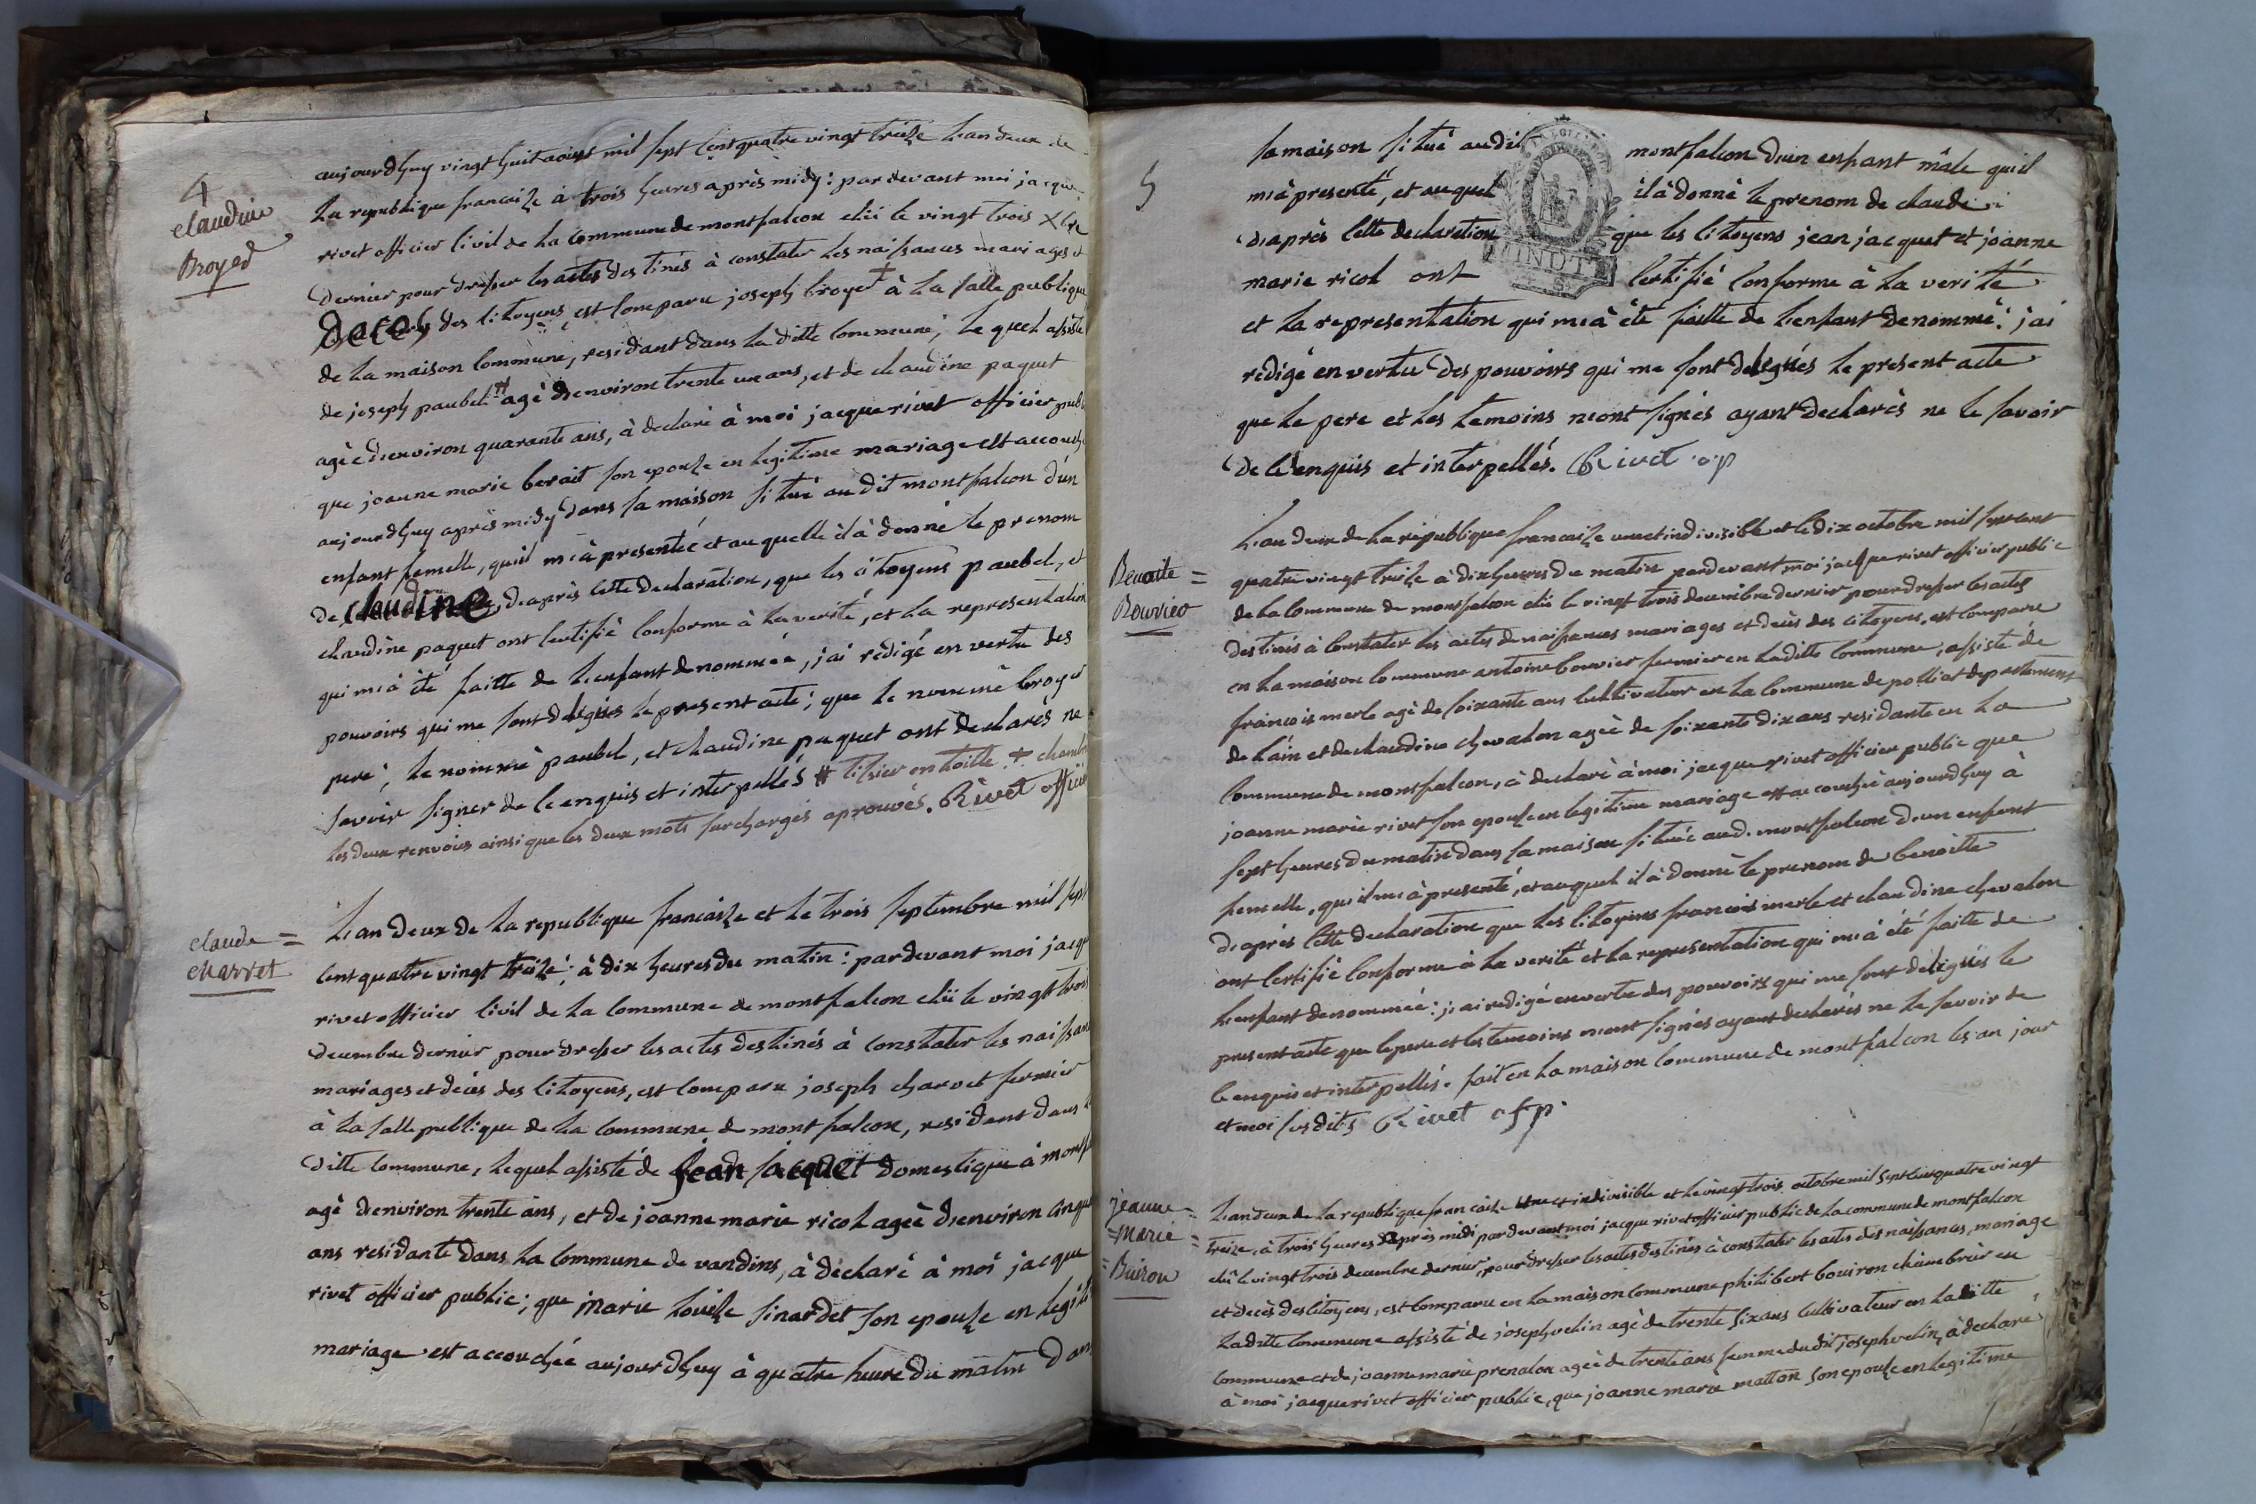 4
claudine
Broyed
aujourdhuy vingt huit aoust mil sept cent quatre vingt treize l'an deux de
la republique francaize à trois heures après midy : pardevant moi jacque
rivet officier civil de la commune de montfalcon elüe le vingt trois Xbre
dernier pour dresser les actes destinés à constater les naissances mariages et
deces des citoyens est comparu joseph broyer + à la salle publique
de la maison commune, residant dans la ditte commune, le quel assisté
de joseph paubel # agé d'environ trente un ans, et de claudine paquet
agèe d'environ quarante ans, à declaré à moi jacque rivet officier publ
que joanne marie berait son epouze en legitime mariage est accouch
aujourdhuy après midy dans sa maison situé au dit montfalcon d'un
enfant femelle, quil m'à presentée et au quelle il à donné le prenom
de claudine, d'après cette declaration, que les citoyens paubel, et
claudine paquet ont certifié conforme à la verité, et la representation
qui m'à été faitte de l'enfant denommée, j'ai rédigé en vertu des
pouvoirs qui me sont délégués le present acte ; que le nommé broyer
pere, le nommé paubel, et claudine paquet ont declarés ne
savoir signer de ce enquis et interpellés # tissier en toille + chambr
les deux renvois ainsi que les deux mots surchargés aprouvés. Rivet officier
claude =
charvet
L'an deux de la republique francaize et le trois septembre mil sept
cent quatre vingt treize ; à dix heures du matin : pardevant moi jacqu
rivet officier civil de la commune de montfalcon elüe le vingt trois
decembre dernier pour dresser les actes destinés à constater les naissan
mariages et décés des citoyens, est comparu joseph charvet fermier
à la salle publique de la commune de montfalcon, resident dans l
ditte commune, le quel assisté de jean jacquet domestique à montf
agé d'environ trente ans, et de joanne marie ricol ageé d'environ cinqu
ans residante dans la commune de vandins, à déclaré à moi jacque
rivet officier public ; que marie louise sinardet son epouze en legiti
mariage est accouchée aujourdhuy à quatre heure du matin dans
5
sa maison situé au dit montfalcon d'un enfant mâle quil
m'à presenté, et auquel il à donné le prenom de claude
d'après cette declaration que les citoyens jean jacquet et joanne
marie ricol ont certifié conforme à la verité
et la representation qui m'à été faitte de l'enfant denommé : j'ai
rédigé en vertu des pouvoirs qui me sont délégués le present acte
que le pere et les temoins n'ont signés ayant declarés ne le savoir
de ce enquis et interpellés. Rivet o.p
Benoite =
Bouvier
L'an deux de la république francaize une et indivisible et le dix octobre mil sept cent
quatre vingt treize à dix heures du matin pardevant moi jacque rivet officier public
de la commune de montfalcon elüe le vingt trois decembre dernier pour dresser les actes
destinés à constater les actes de naissances mariages et decès des citoyens, est comparu
en la maison commune antoine bouvier fermier en laditte commune, assisté de
francois merle agé de soixante ans cultivateur en la commune de polliat departement
de l'ain et de claudine chevalon ageé de soixante dix ans residante en la
commune de montfalcon, à declaré à moi jacque rivet officier public que
joanne marie rivet son epouze en legitime mariage est accouchée aujourdhuy à
sept heures du matin dans sa maison située aud. montfalcon d'un enfant
femelle, qu'il m'à presenté, et auquel il à donné le prenom de benoitte
d'après cette declaration que les citoyens francois merle et claudine chevalon
ont certifié conforme à la verité et la representation qui m'à été faite de
l'enfant denommée : j'ai redigé en vertu des pouvoirs qui me sont délégués le
present acte que le pere et les temoins n'ont signés ayant declarés ne le savoir de
ce enquis et interpellés. fait en la maison commune de montfalcon les an jour
et moi susdits Rivet ofp.
jeanne =
= marie =
= Buiron
L'an deux de la republique francaise une et indivisible et le vingt trois octobre mil sept cent quatre vingt
treize, à trois heures d'après midi pardevant moi jacque rivet officier public de la commune de montfalcon
elü le vingt trois decembre dernier, pour dresser les actes destinés à constater les actes des naissances, mariage
et decès des citoyens, est comparu en la maison commune philibert bouiron chambrier en
laditte commune assisté de joseph velin agé de trente six ans cultivateur en laditte
commune et de joanne marie prenalon ageé de trente ans femme du dit joseph velin, à declaré
à moi jacque rivet officier public, que joanne marie matton son epouze en legitime